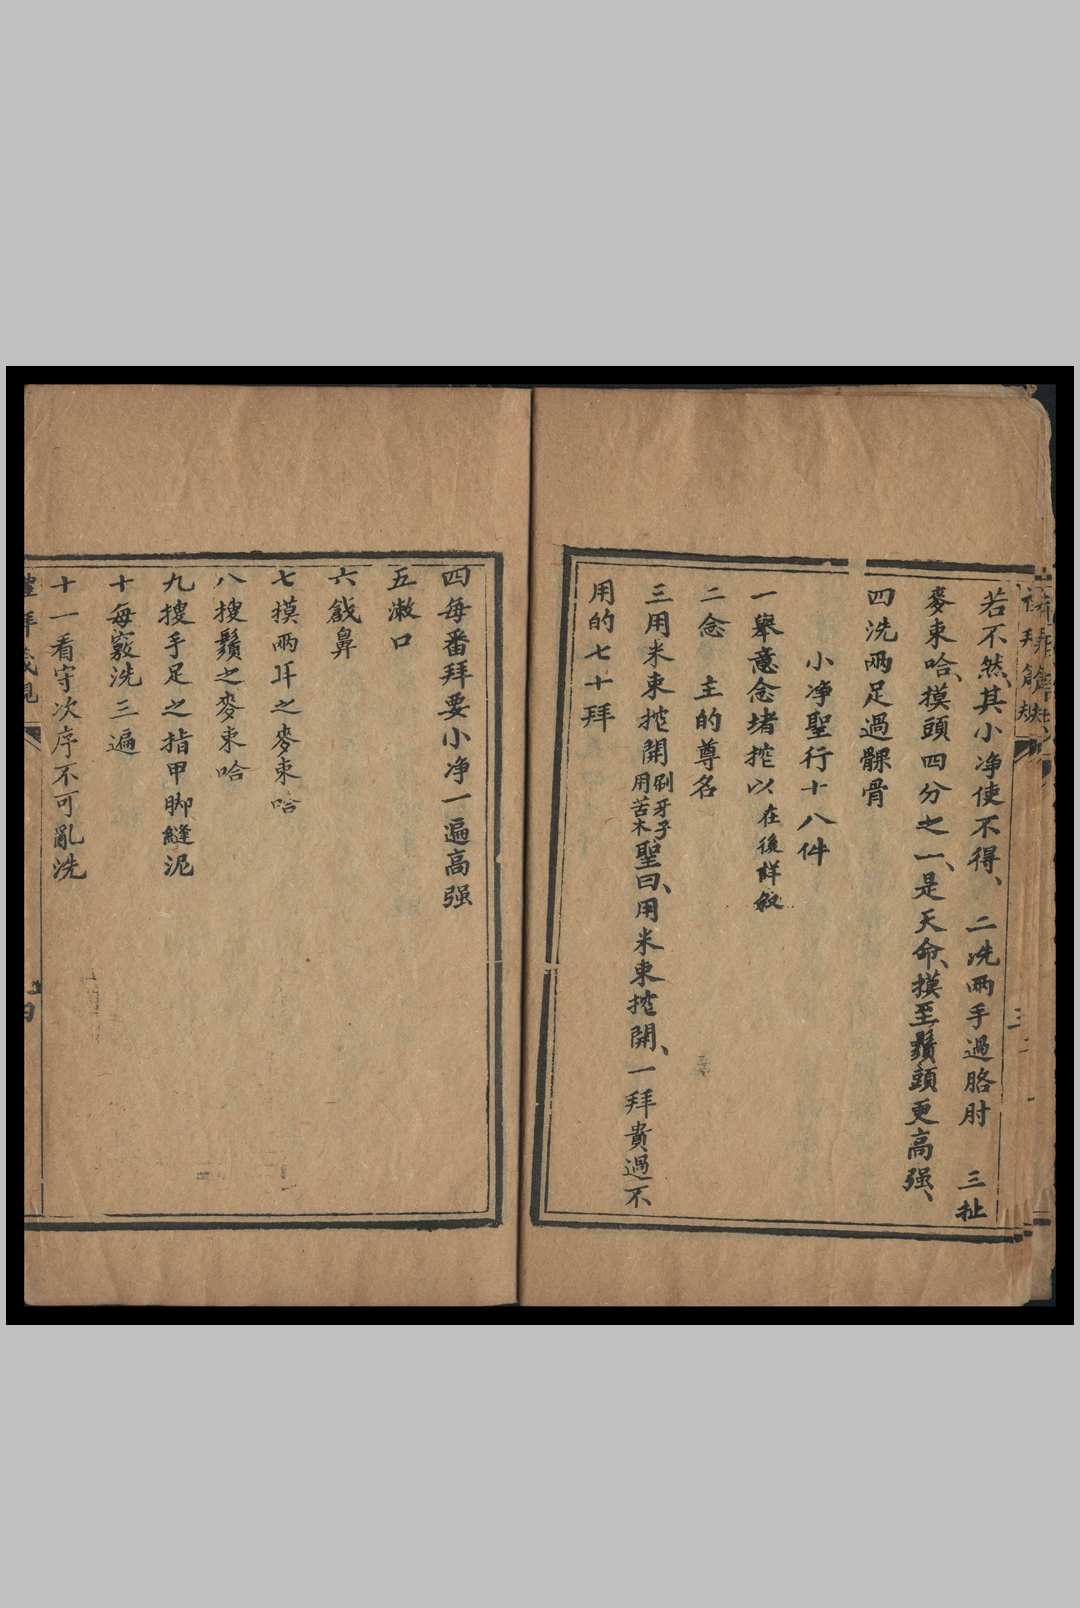 若不然其小净使不得、 二洗兩手過胳肘 三扯
麥束哈、摸頭四分之一、是天命、摸至鬚頭更高强、
四洗兩足過髁骨
小净聖行十八件
一舉意念堵搾以在後詳敘
二念 主的尊名
三用米束搾開刷牙子用苦木聖曰、用米束搾開、一拜貴過不
用的七十拜
四每番拜要小净一遍高强
五漱口
六戧鼻
七摸兩耳之麥束哈
八搜鬚之麥束哈
九搜手足之指甲脚縫泥
十每竅洗三遍
十一看守次序不可亂洗